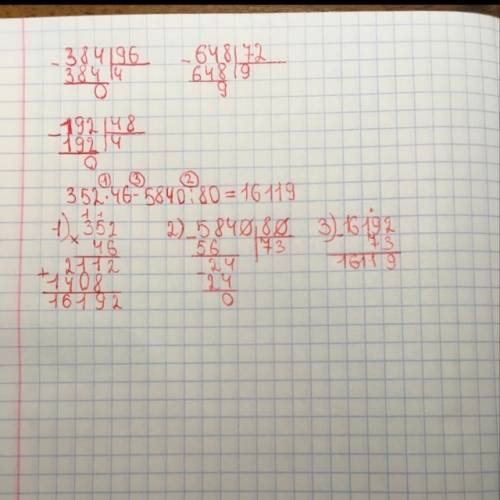 -384|96
384|4
0
-648|72
648|9
9
-192|48
192|4
0
① ③ ②
352·46-5840:80=16119
1) 11
×352
46
+2112
1408
16192
2) -5840|80
56|73
-24
24
0
3) -16192
73
16119